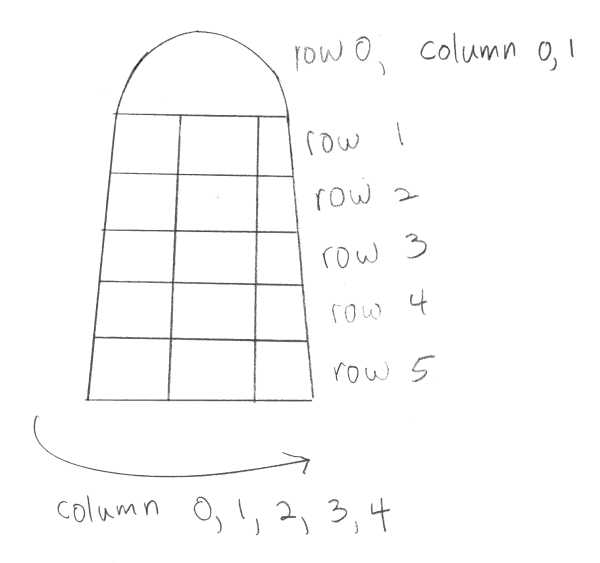 row 0, column 0, 1
row 1
row 2
row 3
row 4
row 5
column 0, 1, 2, 3, 4